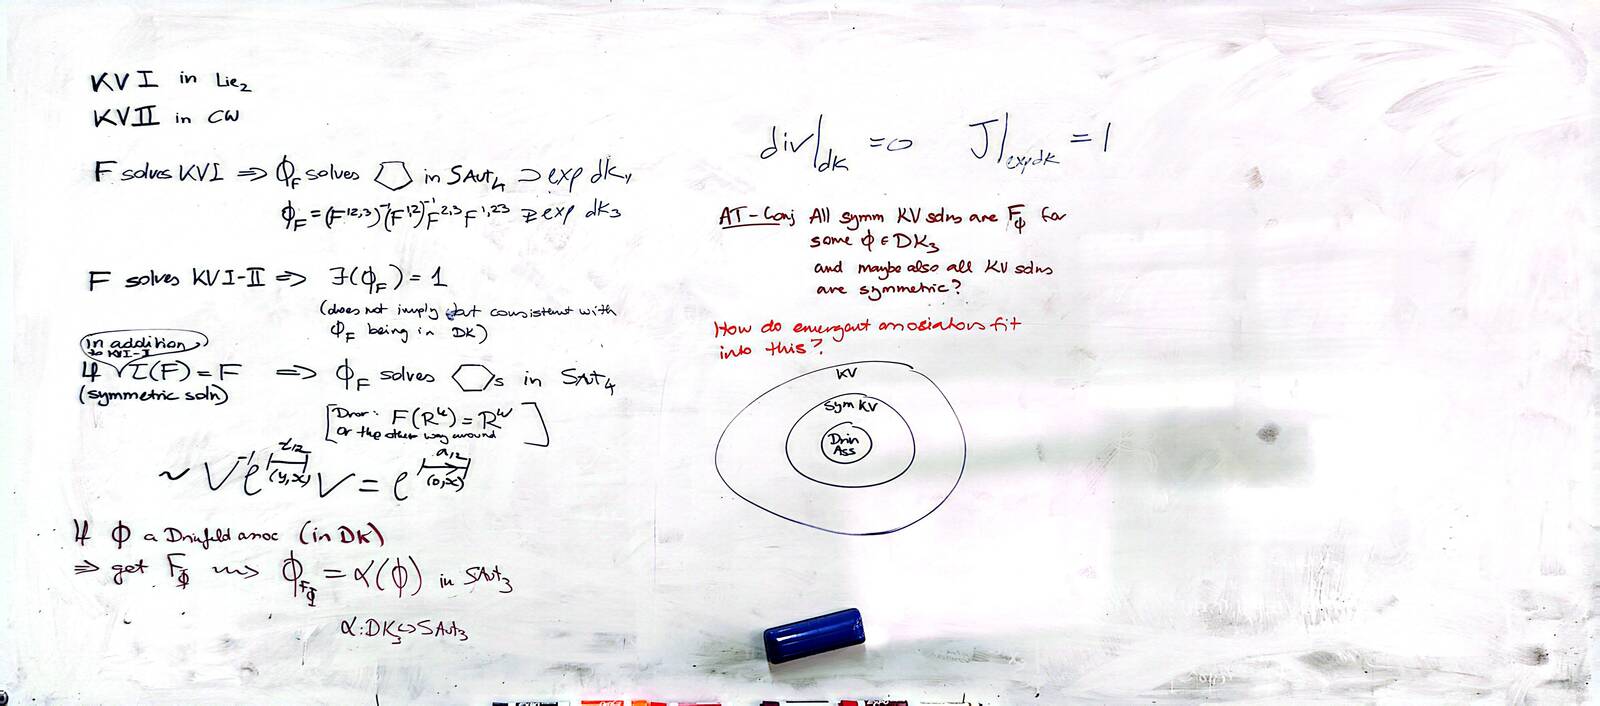 KV I in Lie₂
KV II in CW
F solves KVI ⇒ Φ_F solves ⬠ in SAut₄ ⊃ exp dk₄
Φ_F = (F^{12,3})^{-1}(F^{12})^{-1}F^{2,3}F^{1,23} ∉ exp dk₃
F solves KVI-II ⇒ J(Φ_F) = 1
(does not imply but consistent with
Φ_F being in DK)
In addition
to KVI-II
If τ(F) = F ⇒ Φ_F solves ⬡s in SAut₄
(symmetric soln)
[Dror: F(R^u) = R^w
or the other way around]
~ V^{-1} e^{t₁₂ (y,x)} V = e^{a₁₂ (0,x)}
If Φ a Drinfeld assoc (in DK)
⇒ get F_Φ ⇝ Φ_{F_Φ} = α(Φ) in SAut₃
α: DK₃ ↪ SAut₃
div|_{dk} = 0 J|_{exp dk} = 1
AT-Conj All symm KV solns are F_Φ for
some Φ ∈ DK₃
and maybe also all KV solns
are symmetric?
How do emergent associators fit
into this?
KV
Sym KV
Drin
Ass